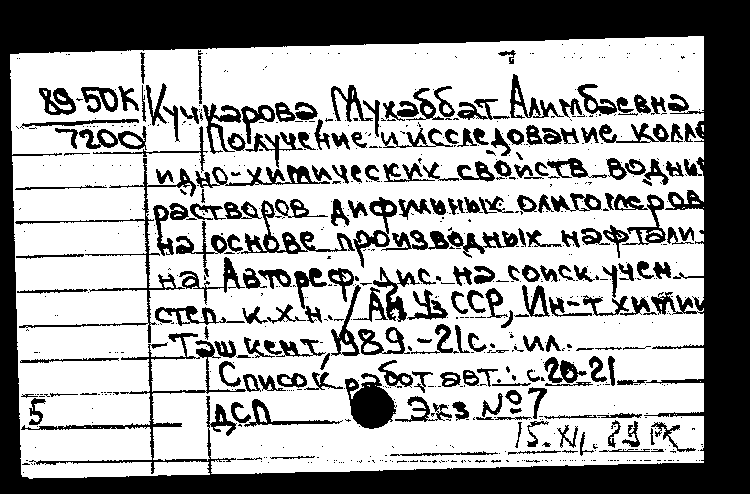 89-50К Кучкарова, Мухаббат Алимбаевна
7200 Получение и исследование колло
идно-химических свойств водны
растворов дифильных олигомеров
на основе производных нафтали-
на: Автореф. дис. на соиск. учен.
степ. к.х.н. / АН УзССР, Ин-т химии
-Ташкент, 1989.-21с. : ил.
Список работ авт.: с.20-21
5 ДСП Экз №7
15.XI. 89 РК